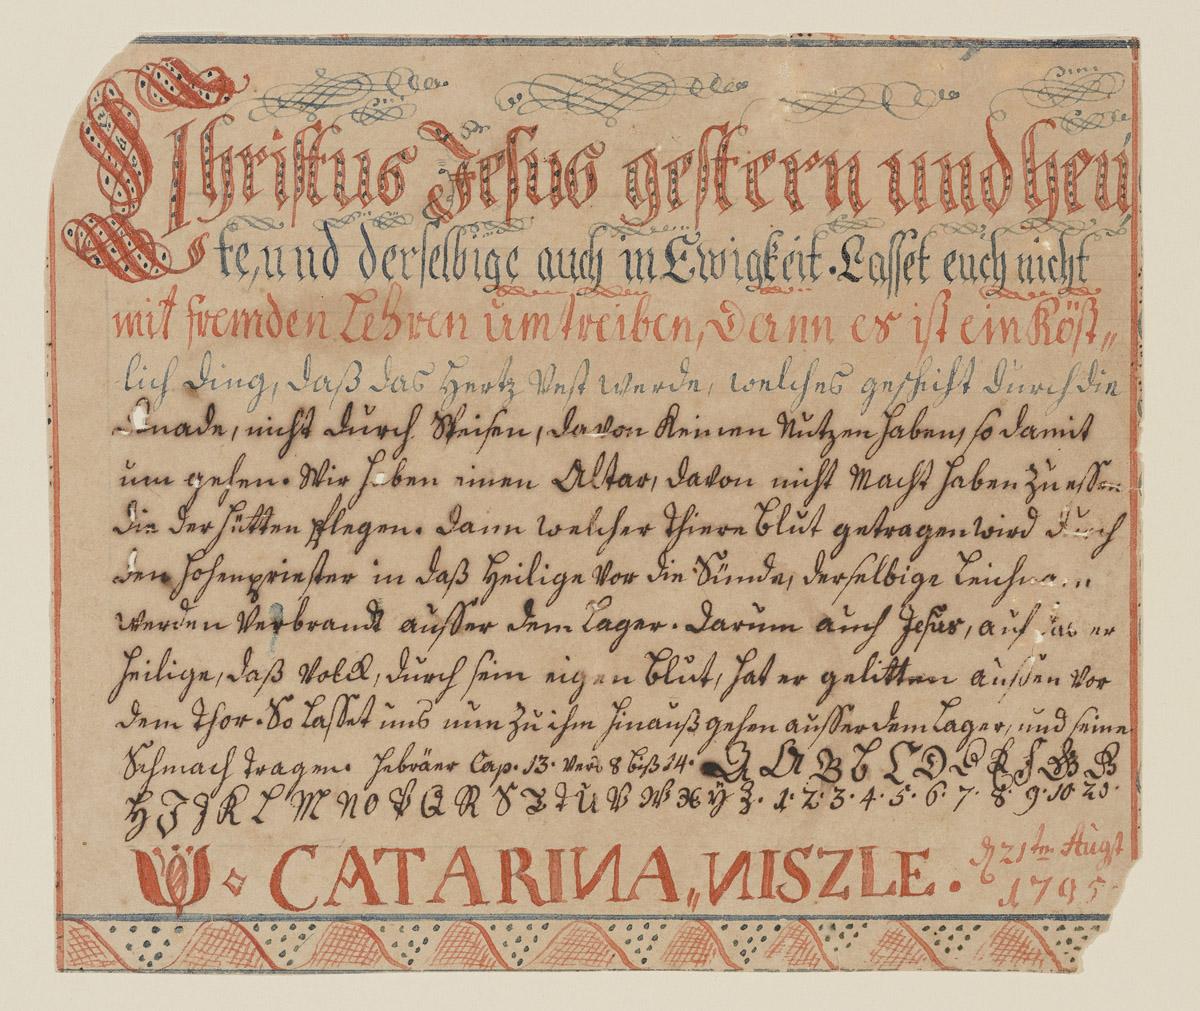 Christus Jesus gestern und heu
te, und derselbige auch in Ewigkeit. Lasset euch nicht
mit fremden Lehren umtreiben, dann es ist ein Köst„
lich Ding, daß das Hertz Vest werde, welches geschicht durch die
Gnade, nicht durch Speisen, davon Keinen Nutzen haben, so damit
um gehen. Wir haben einen Altar, davon nicht Macht haben zu essen
die der Hütten pflegen. Dann welcher Thiere Blut getragen wird durch
den Hohenpriester in daß Heilige Vor die Sünde, derselbige Leichnam
werden Verbrandt ausser dem Lager. Darum auch Jesus, auf das er
heilige, daß Volck, durch sein eigen Blut, hat er gelitten aussen Vor
dem Thor. So Lasset uns nun zu ihm hinauß gehen ausser dem Lager, und seine
Schmach tragen. Hebräer Cap. 13. vers 8 biß 14. A A B b C D E F f G B
H I J K L M N O P Q R S T t U V W X Y Z. 1. 2. 3. 4. 5. 6. 7. 8. 9. 10. 20.
CATARINA„NISZLE. 21ten Augt
1795